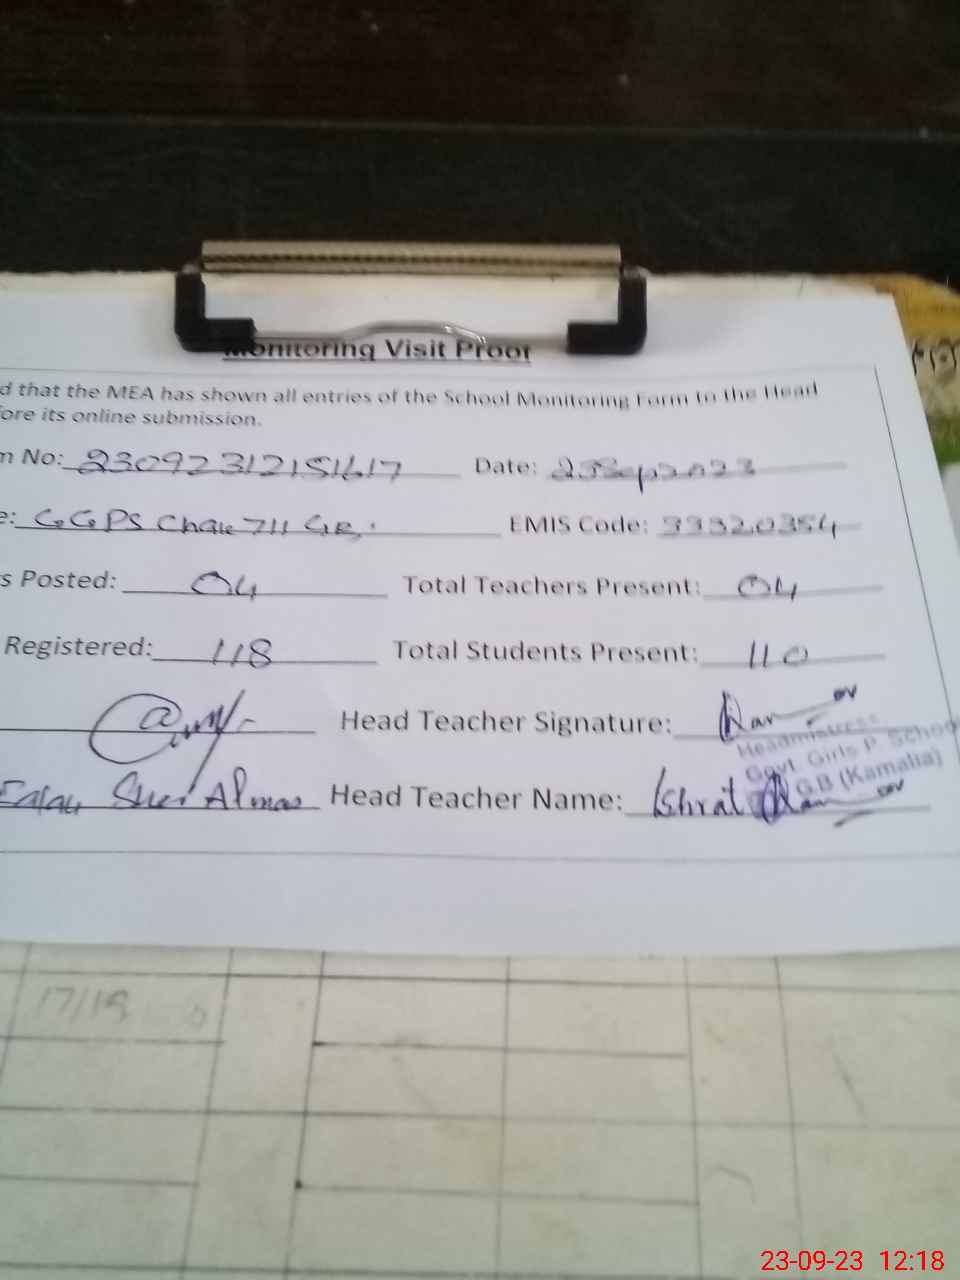 Monitoring Visit Proof
d that the MEA has shown all entries of the School Monitoring Form to the Head
fore its online submission.
m No: 23092312151617 Date: 23Sep2023
e: GGPS Chak 711 GB, EMIS Code: 33320354
s Posted: 04 Total Teachers Present: 04
Registered: 118 Total Students Present: 110
Head Teacher Signature:
Headmistress
Govt. Girls P. School
G.B (Kamalia)
Sher Almas Head Teacher Name: Ishrat
17/19
23-09-23 12:18